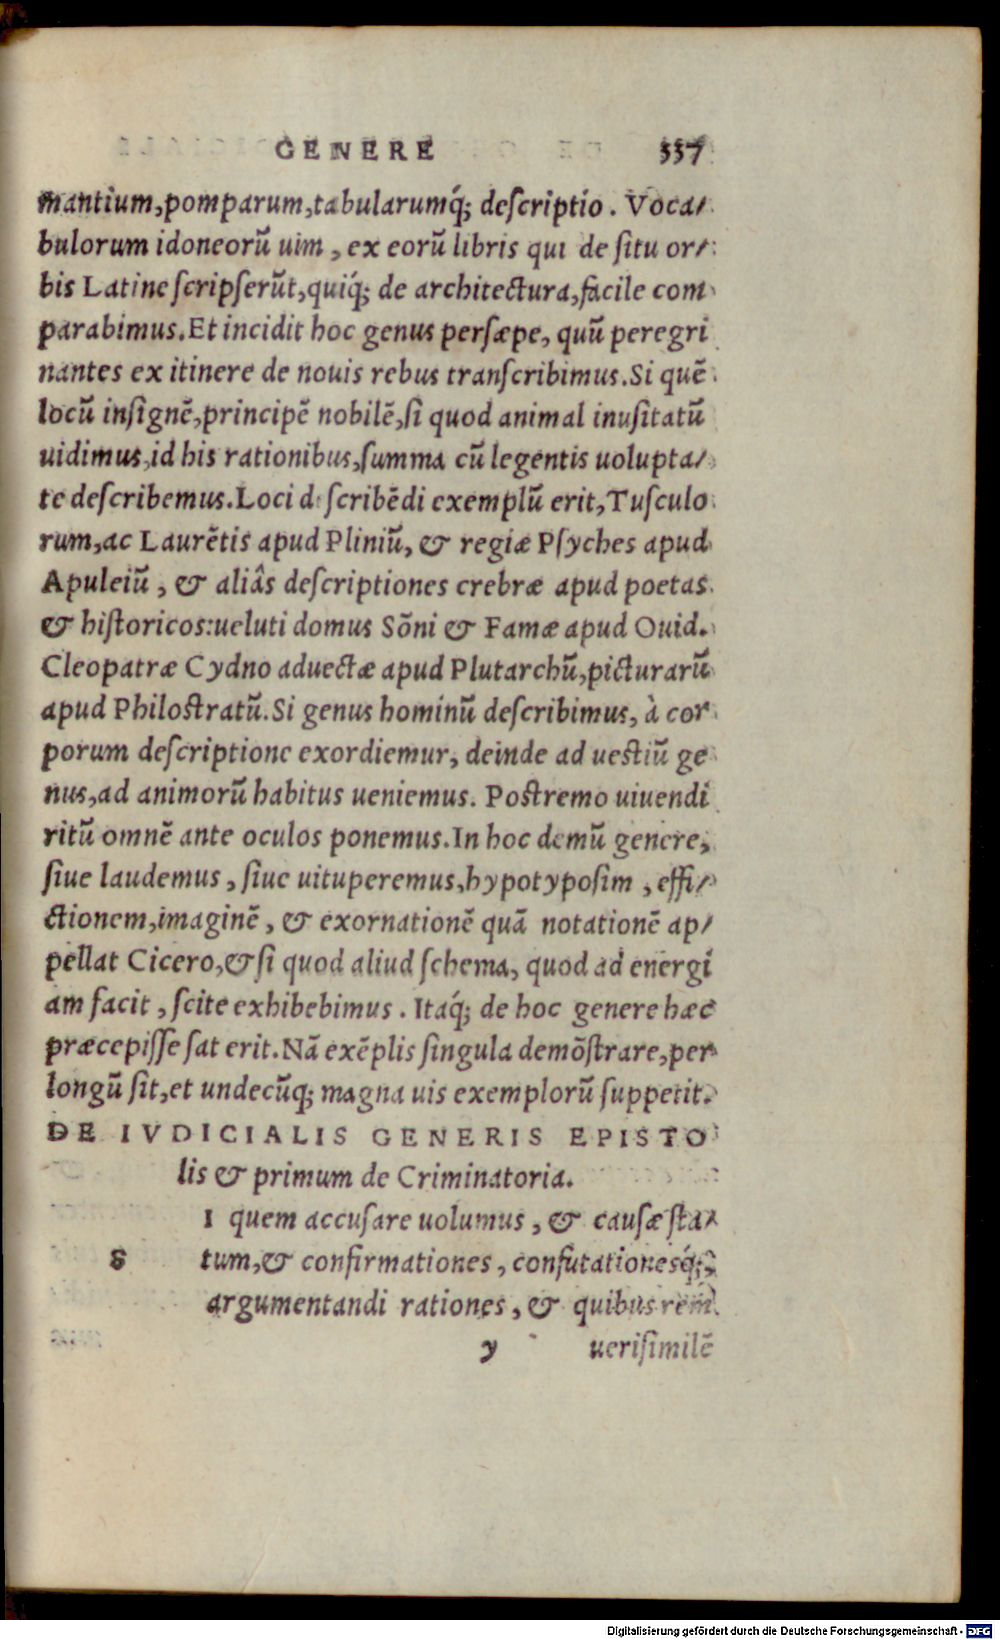 GENERE 337
mantium,pomparum,tabularumq́; deſcriptio. Voca/
bulorum idoneorũ uim, ex eorũ libris qui de ſitu or/
bis Latine ſcripſerũt,quiq́; de architectura,facile com
parabimus.Et incidit hoc genus perſæpe, quũ peregri
nantes ex itinere de nouis rebus tranſcribimus.Si quẽ
locũ inſignẽ,principẽ nobilẽ,ſi quod animal inuſitatũ
uidimus,id his rationibus,ſumma cũ legentis uolupta/
te deſcribemus.Loci d ſcribẽdi exemplũ erit,Tuſculo
rum,ac Laurẽtis apud Pliniũ, & regiæ Pſyches apud
Apuleiũ, & aliâs deſcriptiones crebræ apud poetas
& hiſtoricos:ueluti domus Sõni & Famæ apud Ouid.
Cleopatræ Cydno aduectæ apud Plutarchũ,picturarũ
apud Philoſtratũ.Si genus hominũ deſcribimus, à cor
porum deſcriptione exordiemur, deinde ad ueſtiũ ge
nus,ad animorũ habitus ueniemus. Poſtremo uiuendi
ritũ omnẽ ante oculos ponemus.In hoc demũ genere,
ſiue laudemus, ſiue uituperemus,hypotypoſim, effi/
ctionem,imaginẽ, & exornationẽ quã notationẽ ap/
pellat Cicero,& ſi quod aliud ſchema, quod ad energi
am facit, ſcite exhibebimus. Itaq́; de hoc genere hæc
præcepiſſe ſat erit.Nã exẽplis ſingula demõſtrare,per
longũ ſit,et undecũq; magna uis exemplorũ ſuppetit.
DE IVDICIALIS GENERIS EPISTO
lis & primum de Criminatoria.
I quem accuſare uolumus, & cauſæ ſta/
s tum,& confirmationes, confutationesq́;,
argumentandi rationes, & quibus rem
y ueriſimilẽ
Digitalisierung gefördert durch die Deutsche Forschungsgemeinschaft - DFG